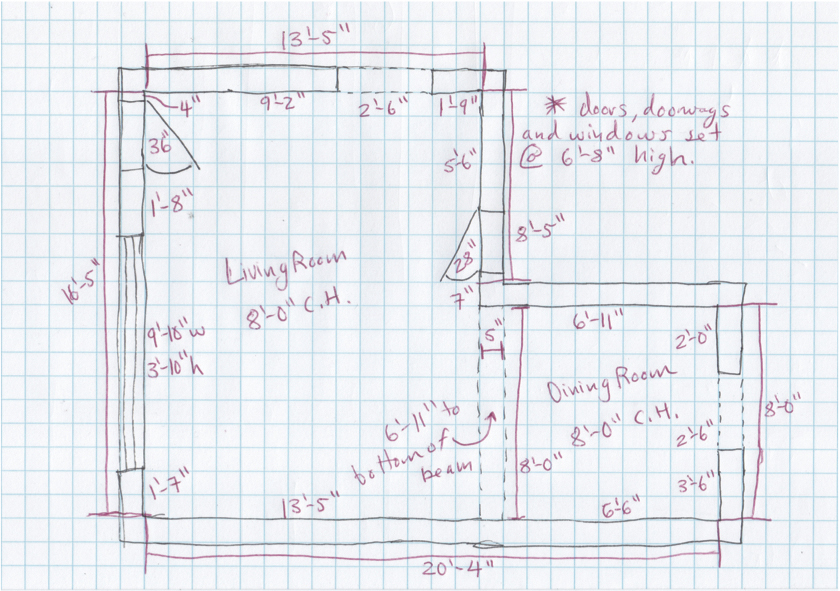 13'-5"
4"
9'-2"
2'-6"
1'-9"
* doors, doorways
and windows set
@ 6'-8" high.
36"
5'-6"
1'-8"
8'-5"
28"
Living Room
8'-0" C.H.
16'-5"
7"
6'-11"
5"
2'-0"
9'-10" w
3'-10" h
Dining Room
8'-0" C.H.
8'-0"
6'-11" to
bottom of
beam
2'-6"
8'-0"
3'-6"
1'-7"
13'-5"
6'-6"
20'-4"